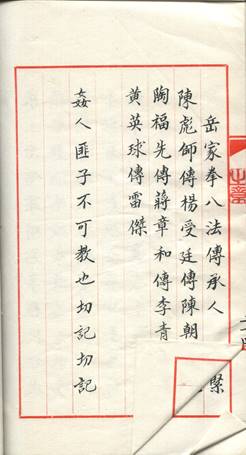 岳家拳八法傳承人
陳彪師傳楊受廷傳陳朝
陶福先傳蔣章和傳李青
黃英球傳雷傑
姦人匪子不可教也切記切記